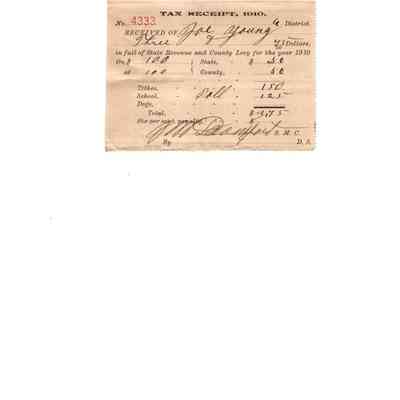 TAX RECEIPT, 1910.
No. 4333 6 District.
RECEIVED OF Joe Young
Three & 75 Dollars,
in full of State Revenue and County Levy for the year 1910
On $ 100 State, $ 50
at 100 County, 50
Tithes, 150
School, Poll 125
Dogs,
Total, $ 3,75
Six per cent. penalty, $
S. H. C.
By D. S.